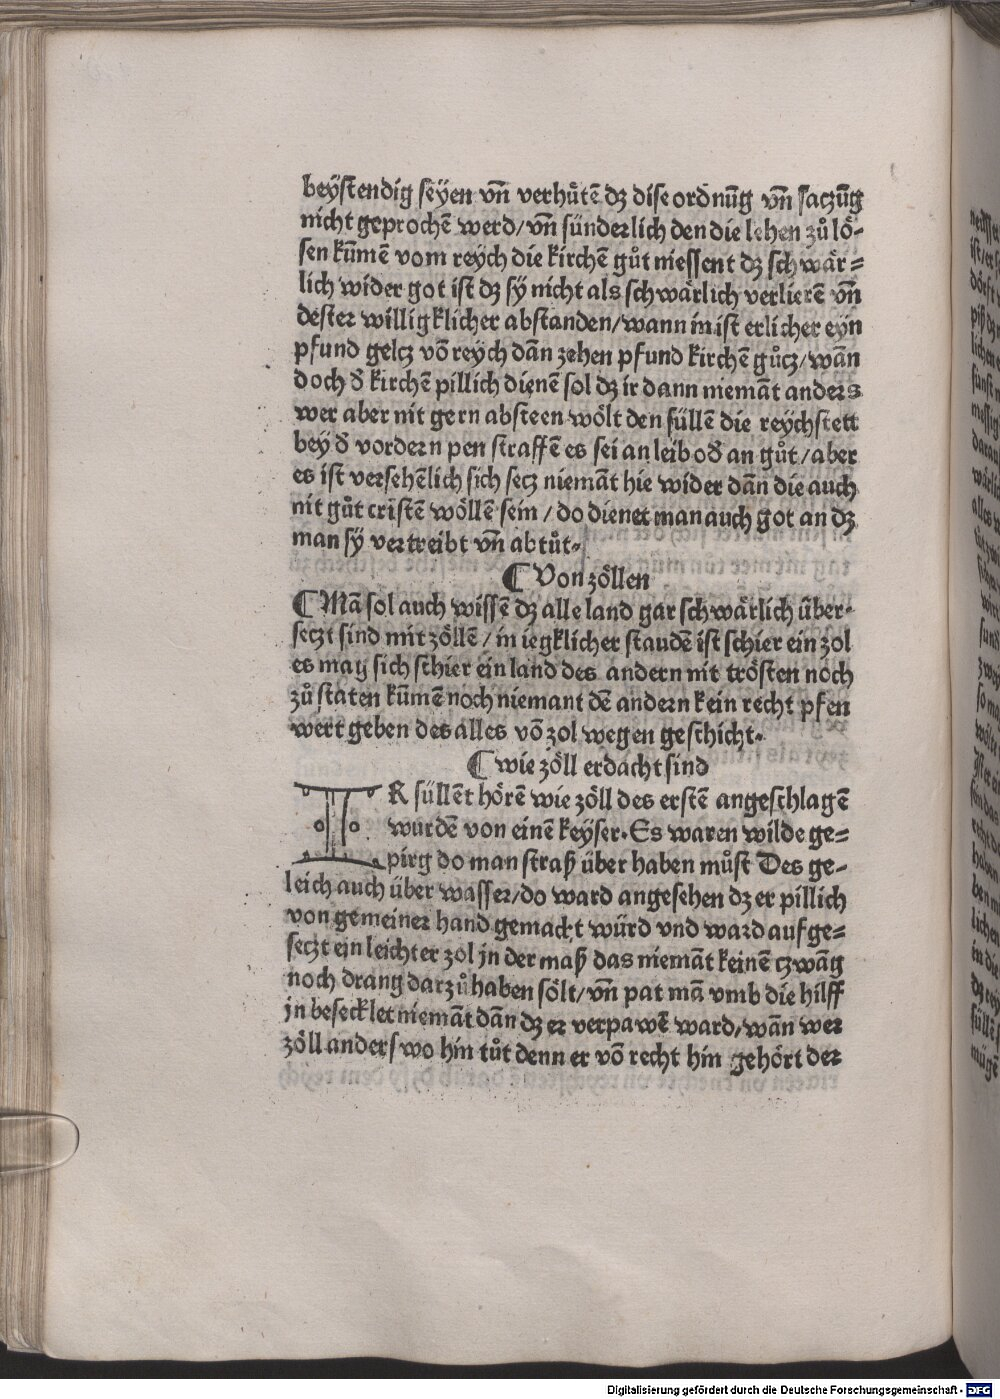 beÿstendig seÿen vñ verhůtẽ dʒ dise ordnũg vñ saczũg
nicht geprochẽ werd/vñ sünderlich den die lehen zů lö-
sen kũmẽ vom reÿch die kirchẽ gůt niessent dʒ schwär=
lich wider got ist dʒ sÿ nicht als schwärlich verlierẽ vñ
dester willigklicher abstanden/wann im ist erlicher eyn
pfund gelcz võ reÿch dãn zehen pfund kirchẽ gůcz/wãn
doch đ kirchẽ pillich dienẽ sol dʒ ir dann niemãt anders
wer aber nit gern absteen wölt den süllẽ die reÿchstett
beÿ đ vordern pen straffẽ es sei an leib ođ an gůt/aber
es ist versehẽlich sich secʒ niemãt hie wider dãn die auch
nit gůt cristẽ wöllẽ sein/do dienet man auch got an dʒ
man sÿ vertreibt vñ abtůt.
⸿ Von zöllen
⸿ Mã sol auch wissẽ dʒ alle land gar schwärlich über-
seczt sind mit zöllẽ/in iegklicher staudẽ ist schier ein zol
es mag sich schier ein land des andern nit trösten noch
zů staten kũmẽ noch niemant dẽ andern kein recht pfen
wert geben des alles võ zol wegen geschicht.
⸿ wie zöll erdacht sind
IR süllẽt hörẽ wie zöll des erstẽ angeschlagẽ
wurdẽ von einẽ keÿser. Es waren wilde ge=
pirg do man straß über haben můst Des ge-
leich auch über wasser/do ward angesehen dʒ er pillich
von gemeiner hand gemacht würd vnd ward aufge=
seczt ein leichter zol jn der maß das niemãt keinẽ czwãg
noch drang darzů haben sölt/vñ pat mã vmb die hilff
jn besecklet niemãt dãn dʒ er verpawẽ ward/wãn wer
zöll anderswo hin tůt denn er võ recht hin gehört der
Digitalisierung gefördert durch die Deutsche Forschungsgemeinschaft - DFG